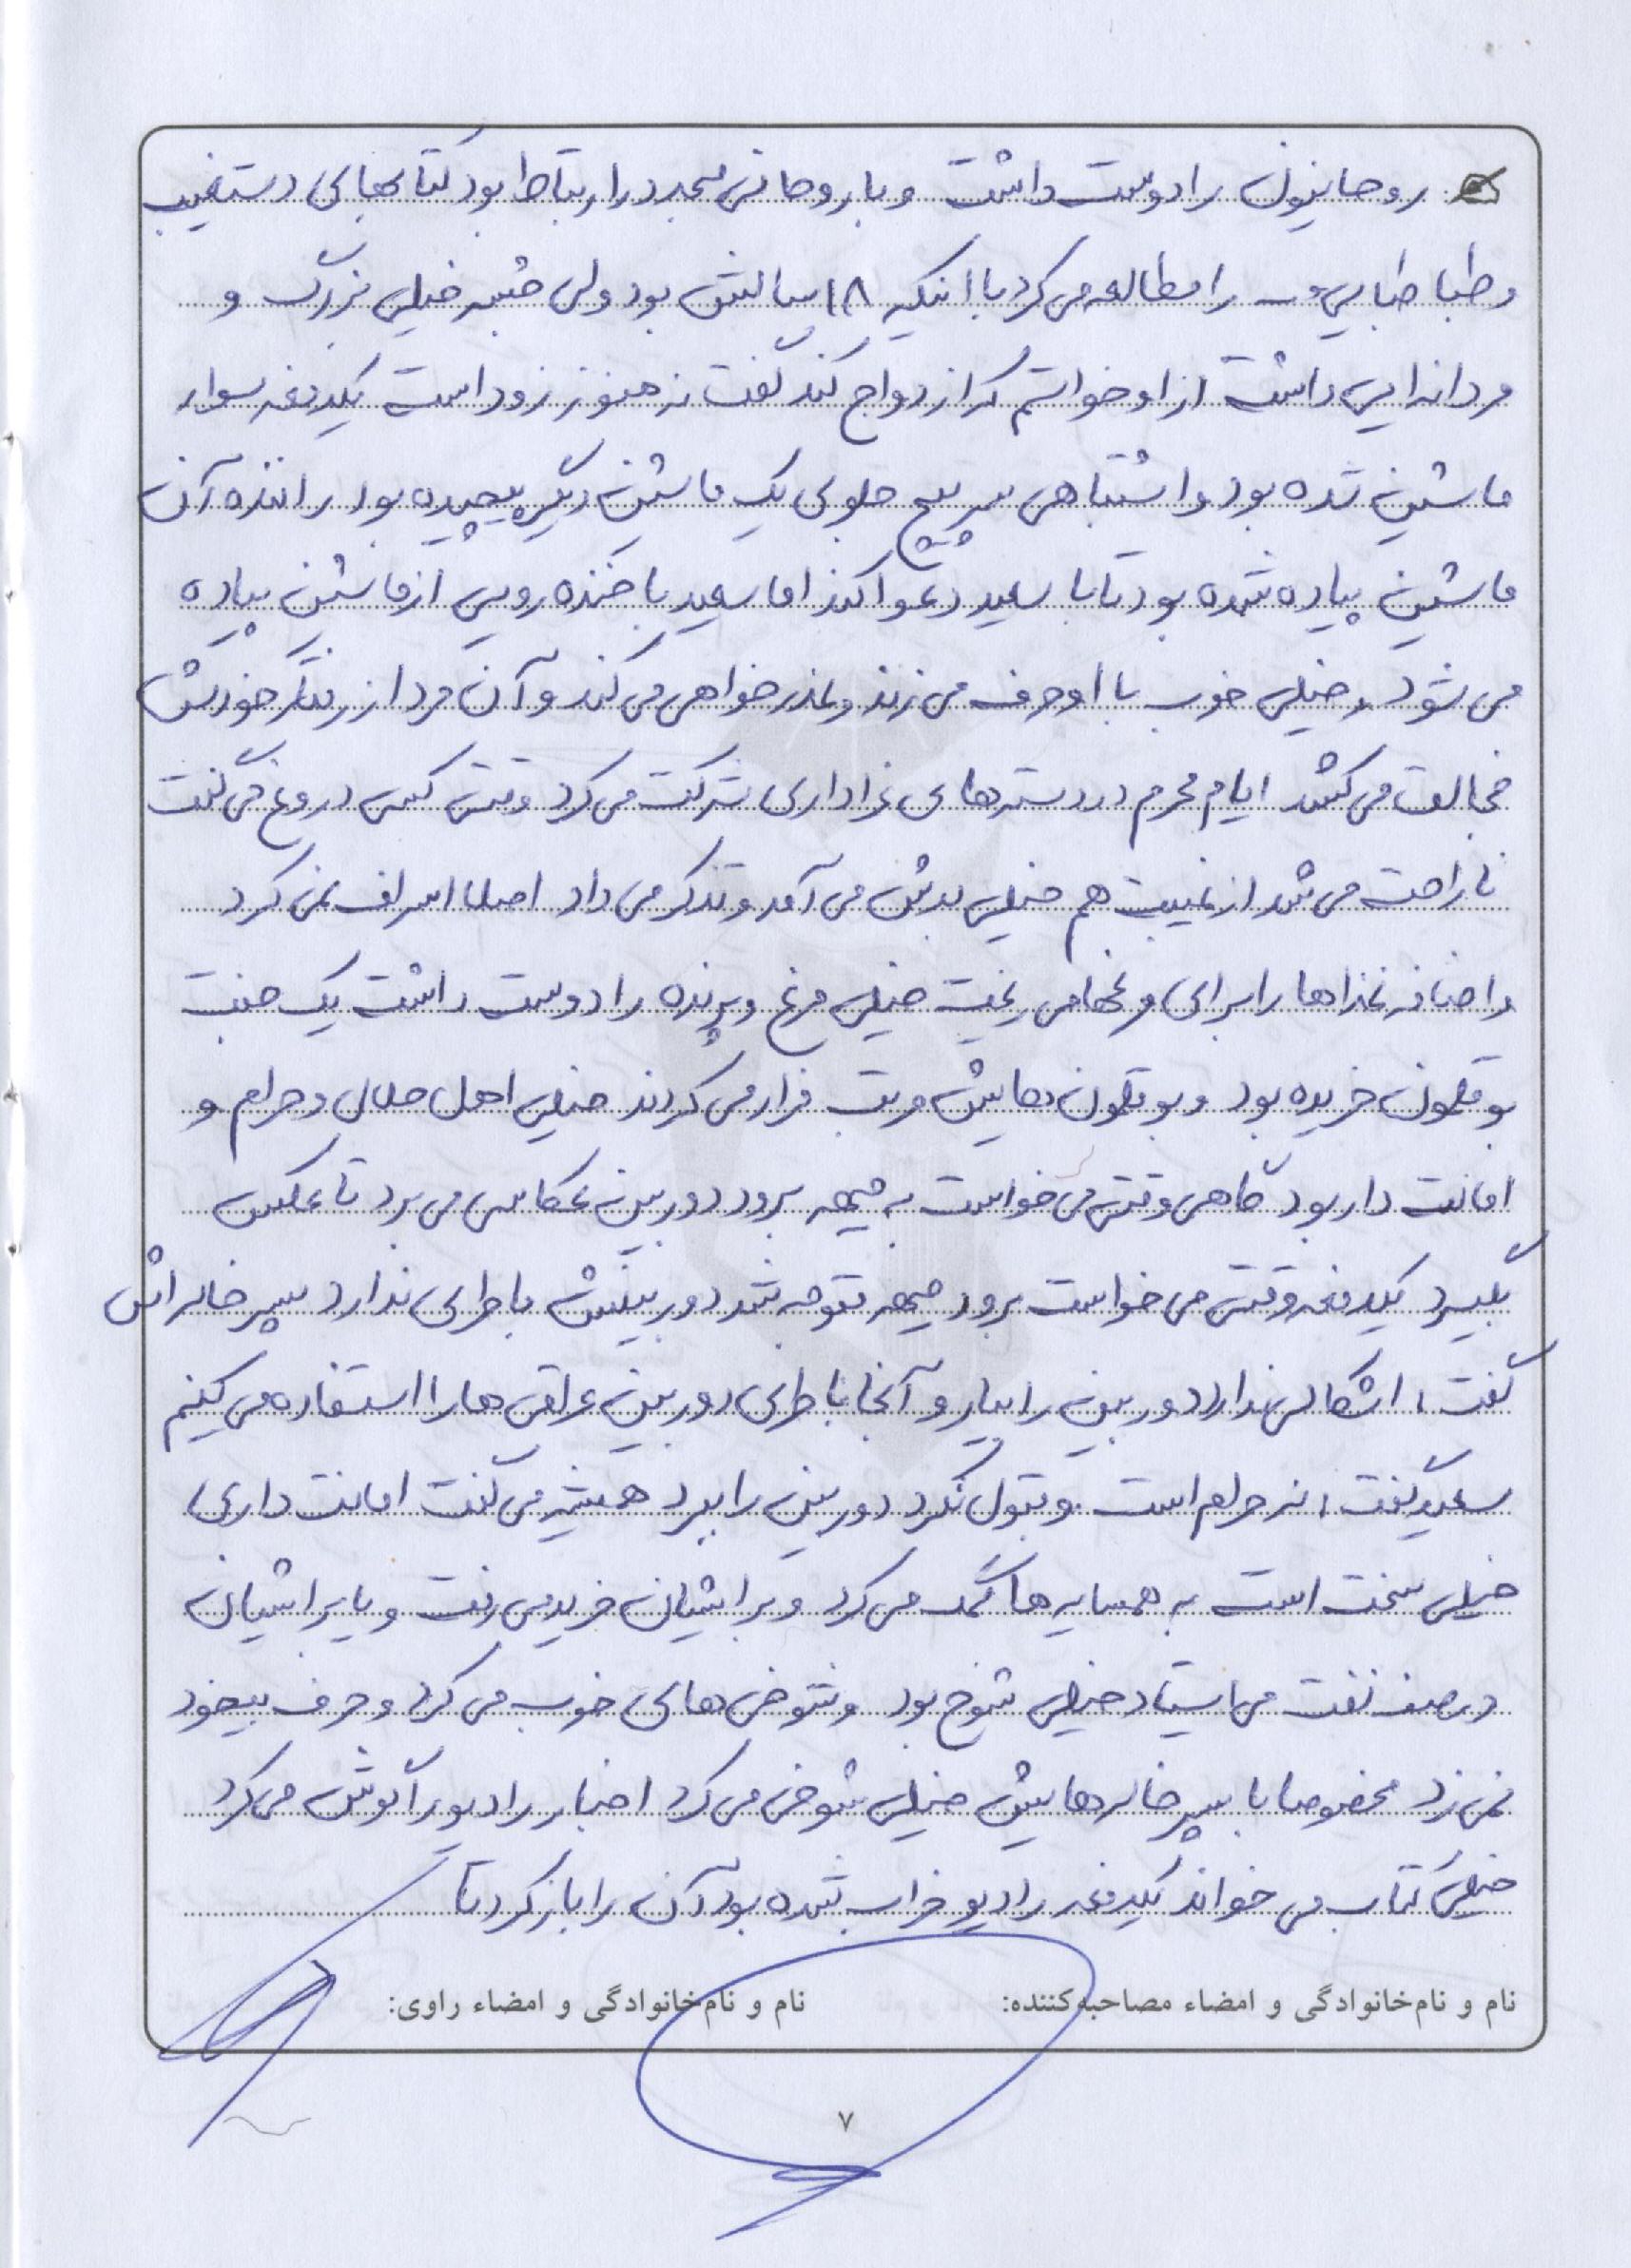 روحانیون را دوست داشت و با روحانی مسجد در ارتباط بود کتابهای دستغیب
و طباطبایی و... را مطالعه می کرد با اینکه ۱۸ سالش بود ولی جثه خیلی بزرگ و
مردانه ایی داشت از او خواستم که ازدواج کند گفت نه هنوز زود است یکدفعه سوار
ماشین شده بود و اشتباهی سر پیچ جلوی یک ماشین دیگر پیچیده بود راننده آن
ماشین پیاده شده بود تا با سعید دعوا کند اما سعید با خنده رویی از ماشین پیاده
می شود و خیلی خوب با او حرف می زند و عذرخواهی می کند و آن مرد از رفتار خودش
خجالت می کشد ایام محرم در دسته های عزاداری شرکت می کرد وقتی کسی دروغ می گفت
ناراحت می شد از غیبت هم خیلی بدش می آمد و تذکر می داد اصلا اسراف نمی کرد
و اضافه غذاها را برای مرغها می ریخت خیلی مرغ و پرنده را دوست داشت یک جفت
بوقلمون خریده بود و بوقلمون هایش مرتب فرار می کردند خیلی اهل حلال و حرام و
امانت دار بود گاهی وقتی می خواست به جبهه برود دوربین عکاسی می برد تا عکس
بگیرد یکدفعه وقتی می خواست برود جبهه متوجه شد دوربینش باطری ندارد پسر خاله اش
گفت: اشکالی ندارد دوربین را بیار و آنجا با طری دوربین عراقی ها را استفاده می کنیم
سعید گفت: نه حرام است و قبول نکرد دوربین را ببرد همیشه می گفت امانت داری
خیلی سخت است به همسایه ها کمک می کرد و برایشان خرید می رفت و یا برایشان
در صف نفت می ایستاد خیلی شوخ بود و شوخی های خوب می کرد و حرف بیخود
نمی زد مخصوصا با پسر خاله هایش خیلی شوخی می کرد اخبار رادیو را گوش می کرد
خیلی کتاب می خواند یکدفعه رادیو خراب شده بود آن را باز کرد تا
نام و نام‌خانوادگی و امضاء مصاحبه‌کننده: نام و نام‌خانوادگی و امضاء راوی:
۷